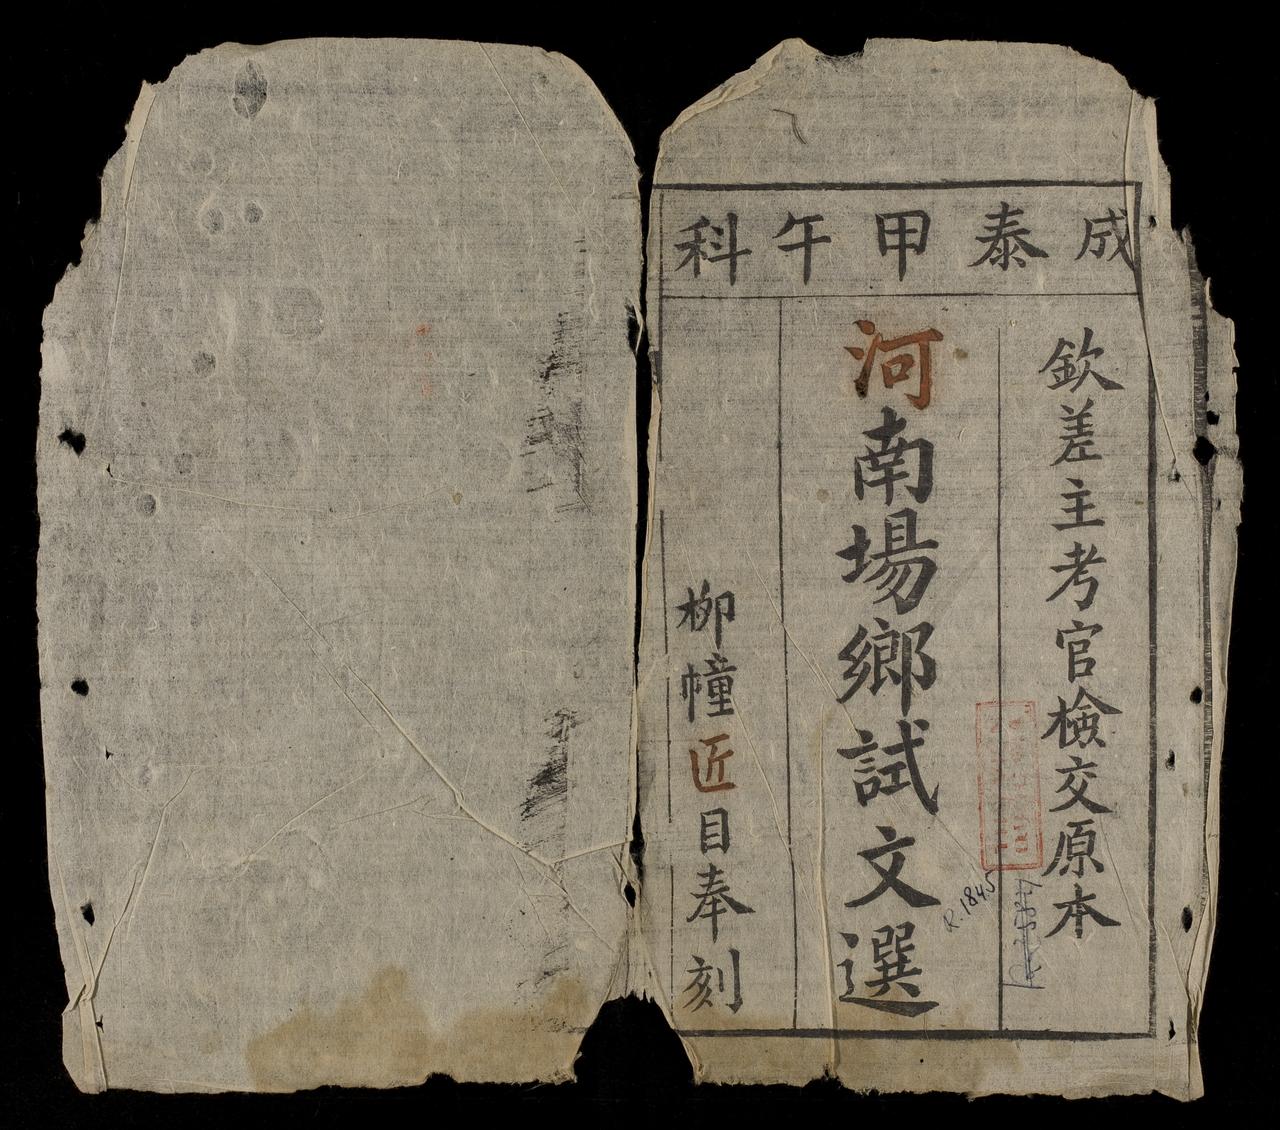 成泰甲午科
欽差主考官檢交原本
河南場鄉試文選
柳幢匠目奉刻
R.1845